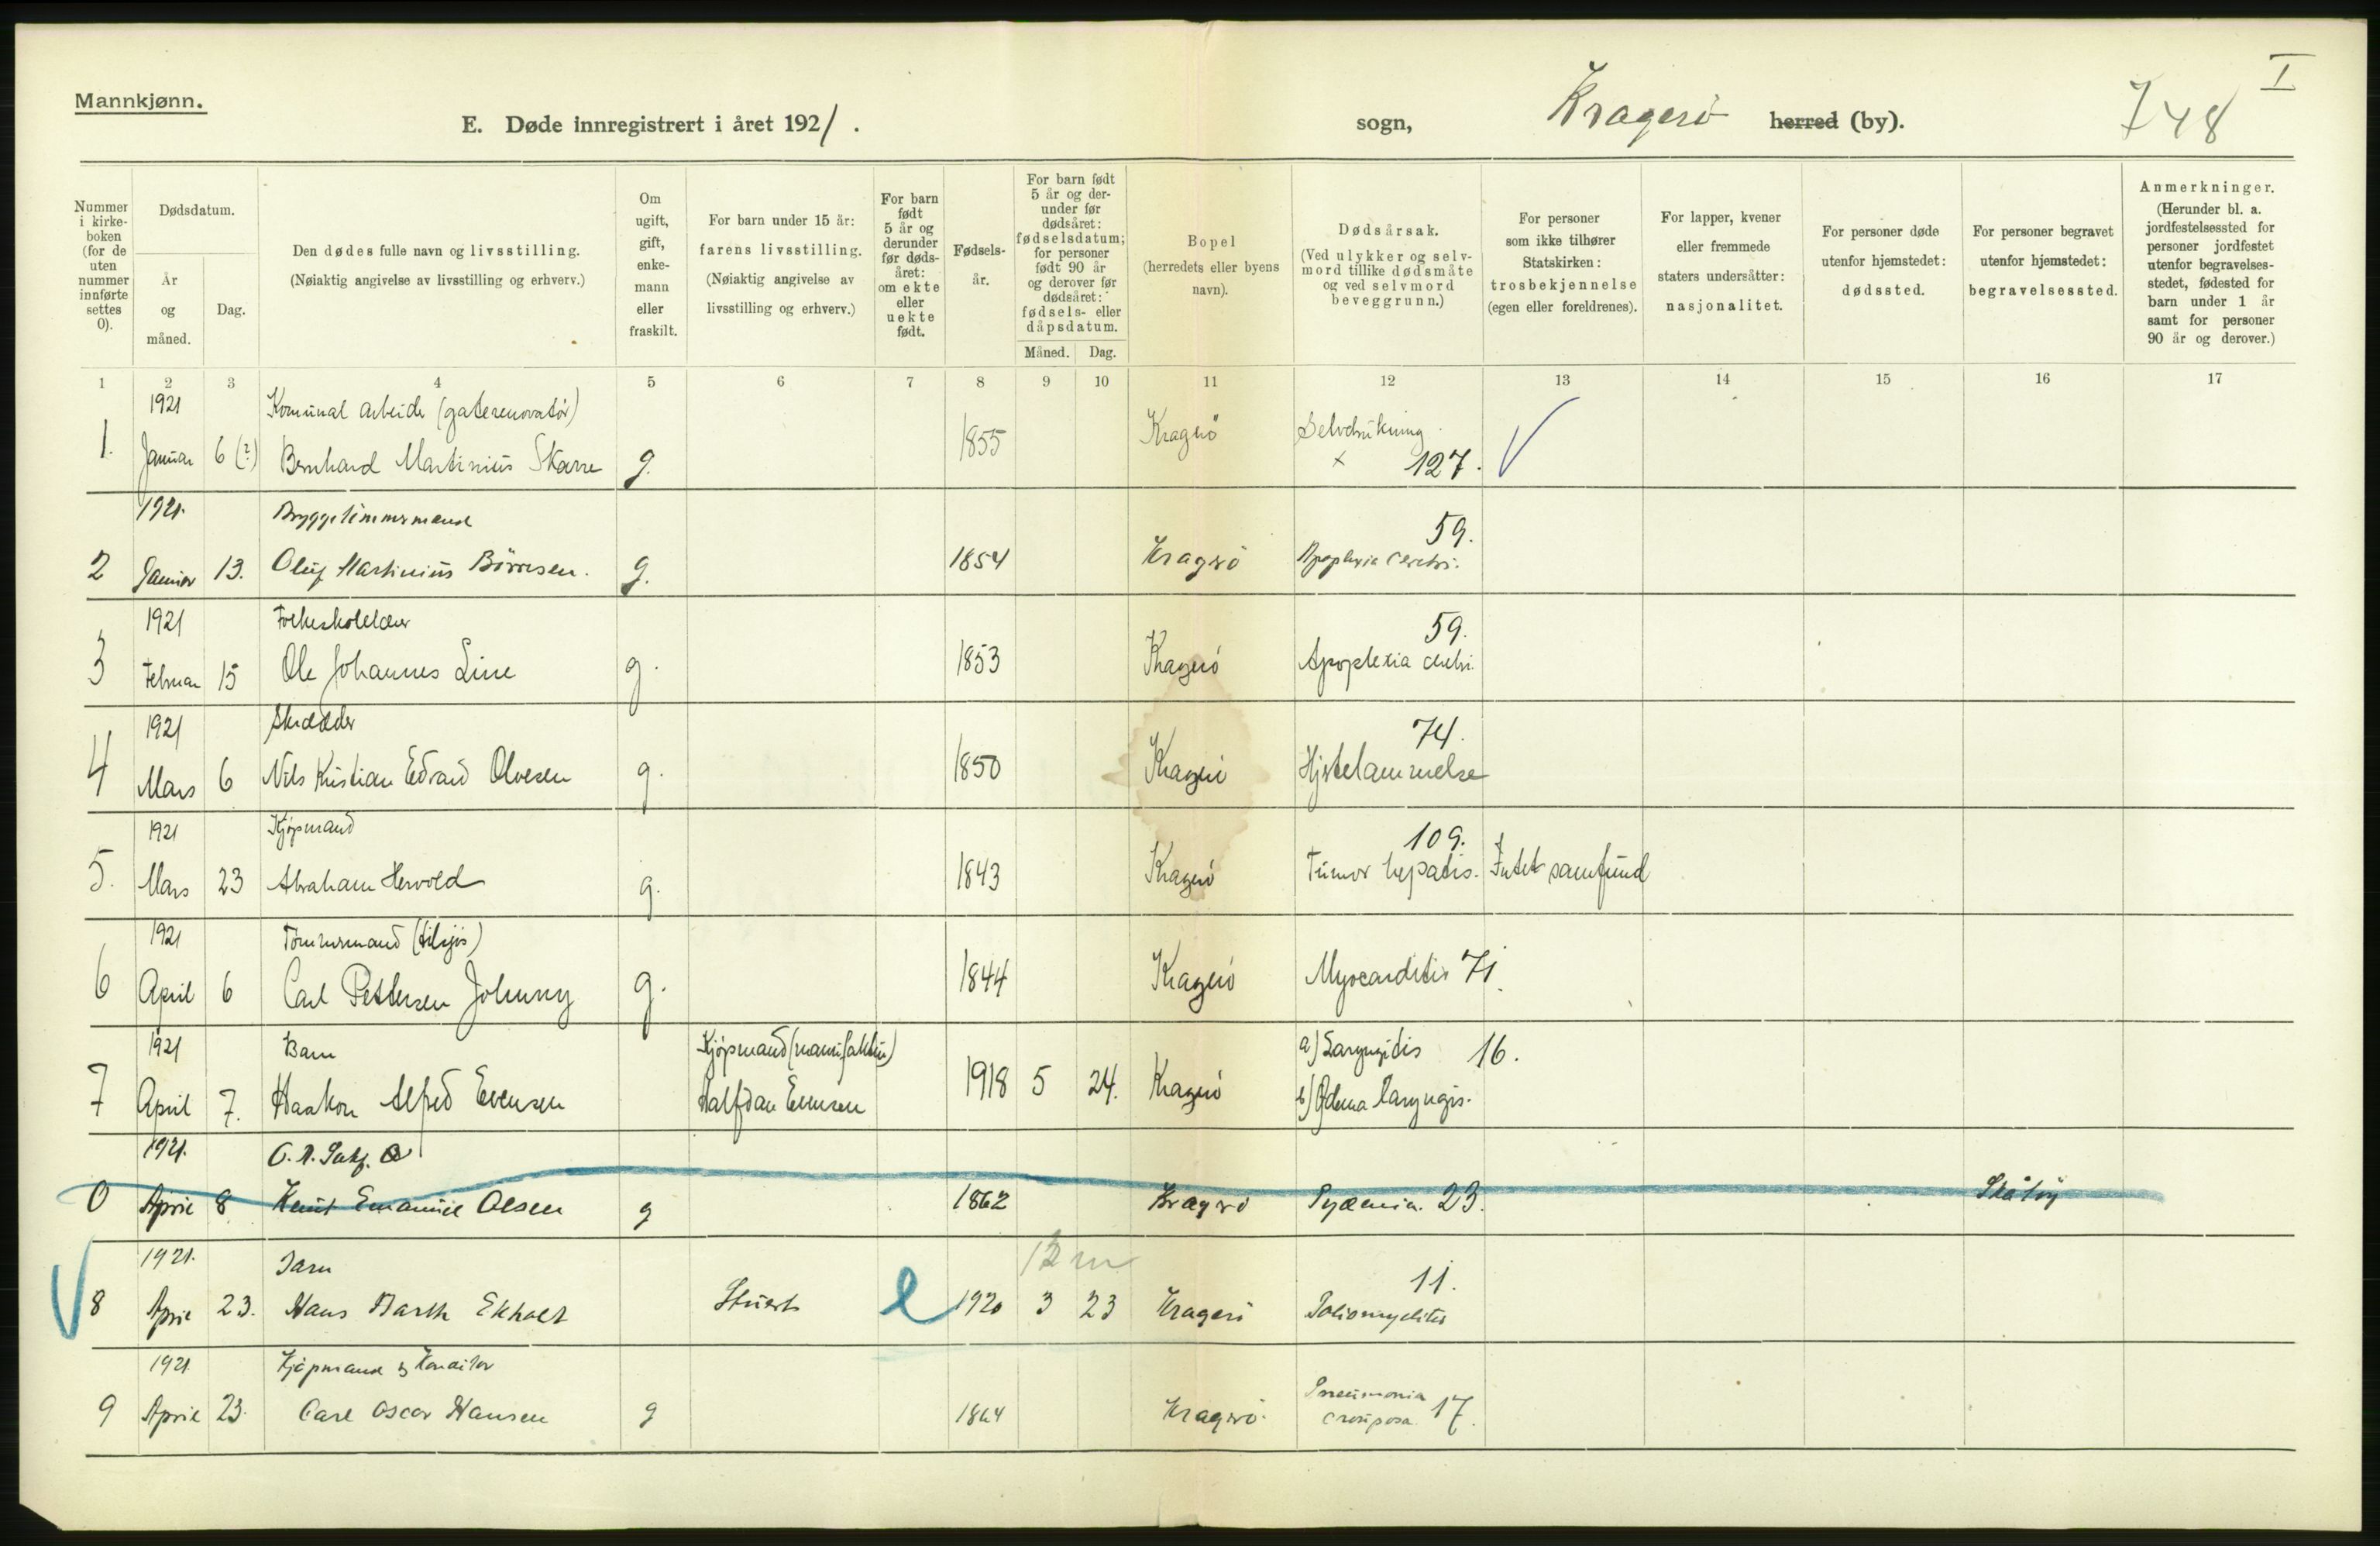 Mannkjønn.
E. Døde innregistrert i året 1921.
sogn,
Kragerö
herred (by).
748
I
Nummer i kirkeboken (for de uten nummer innførte settes 0).
Dødsdatum.
År og måned.
Dag.
Den dødes fulle navn og livsstilling.
(Nøiaktig angivelse av livsstilling og erhverv.)
Om ugift, gift, enkemann eller fraskilt.
For barn under 15 år:
farens livsstilling.
(Nøiaktig angivelse av livsstilling og erhverv.)
For barn født 5 år og derunder før dødsåret: om ekte eller uekte født.
Fødselsår.
For barn født 5 år og derunder før dødsåret: fødselsdatum; for personer født 90 år og derover før dødsåret: fødsels- eller dåpsdatum.
Måned.
Dag.
Bopel
(herredets eller byens navn).
Dødsårsak.
(Ved ulykker og selvmord tillike dødsmåte og ved selvmord beveggrunn.)
For personer som ikke tilhører Statskirken:
trosbekjennelse
(egen eller foreldrenes).
For lapper, kvener eller fremmede staters undersåtter:
nasjonalitet.
For personer døde utenfor hjemstedet:
dødssted.
For personer begravet utenfor hjemstedet:
begravelsessted.
Anmerkninger.
(Herunder bl. a. jordfestelsessted for personer jordfestet utenfor begravelsesstedet, fødested for barn under 1 år samt for personer 90 år og derover.)
1 2 3 4 5 6 7 8 9 10 11 12 13 14 15 16 17
1921 Komunal arbeider (gaterenovatör)
1. Januar 6 (?) Bernhard Martinius Skarre g. 1855 Kragerö Selvdrukning x 127.
1921. Byggetømmermand
2 Januar 13. Oluf Martinius Börresen. g. 1854 Kragerö Apoplexia cerebri. 59.
1921 Folkeskolelærer
3 Februar 15 Ole Johannes Line g. 1853 Kragerö Apoplexia cerebri. 59.
1921 Skrædder
4 Mars 6 Nils Kristian Edvard Olvesen g. 1850 Kragerö Hjertelammelse 74.
1921 Kjøpmand
5. Mars 23 Abraham Hervold g. 1843 Kragerö Tumor hepatis. 109. Intet samfund
1921 Tømmermand (tilsjøs)
6 April 6 Carl Pettersen Johnny g. 1844 Kragerö Myocarditis 71.
1921 Barn Kjøpmand (manufaktur)
7 April 7. Haakon Alfred Evensen Halfdan Evensen 1918 5 24. Kragerö a) Laryngitis 16.
b) Ødema laryngis.
1921.
0 April 8 Knut Emanuel Olsen g 1862 Kragerö Pyæmia. 23. Skåtøy
1921. Barn 12 m
8 April 23. Hans Barth Ekholt Stuert e 1920 3 23 Kragerö Poliomyelitis 11.
1921 Kjøpmand & Konditor
9 April 23. Carl Oscar Hansen g 1864 Kragerö. Pneumonia crouposa 17.